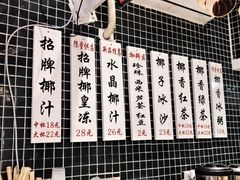 招牌椰汁
中杯18元
大杯22元
限量供应
招牌椰皇冻
28元
新品推荐
水晶椰汁
26元
珍珠西米芋荟红豆
2元
椰子冰沙
23元
椰香红茶
大杯18元
椰香绿茶
椰香冰粥